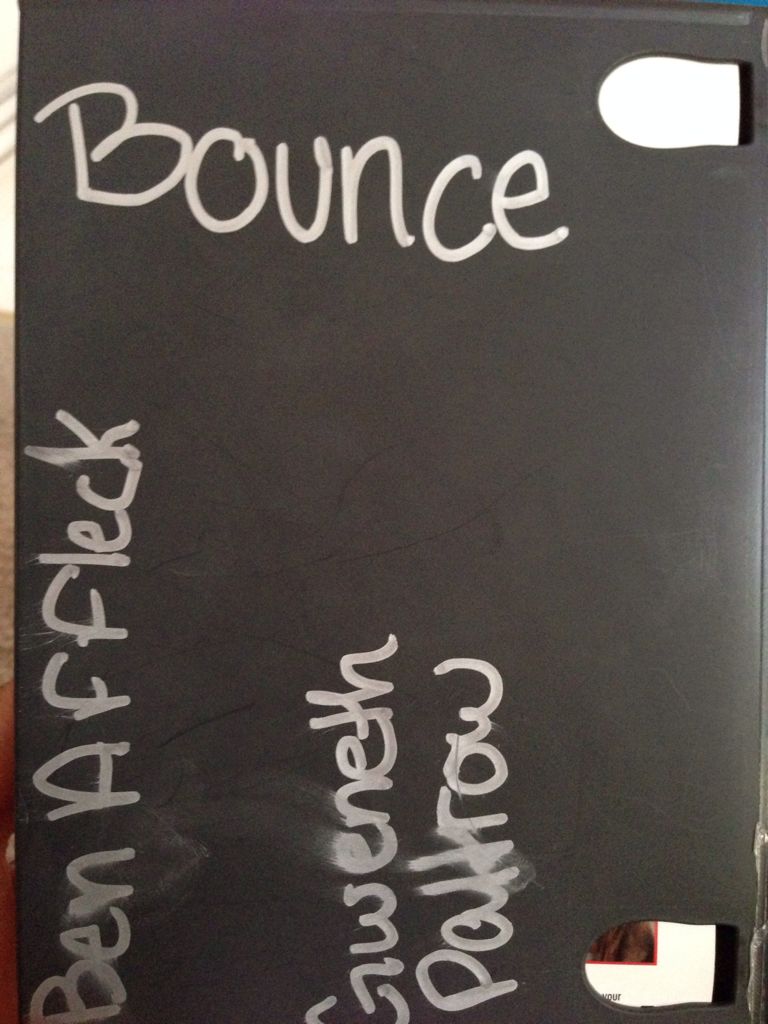 Bounce
Ben Affleck
Gweneth
Paltrow
your